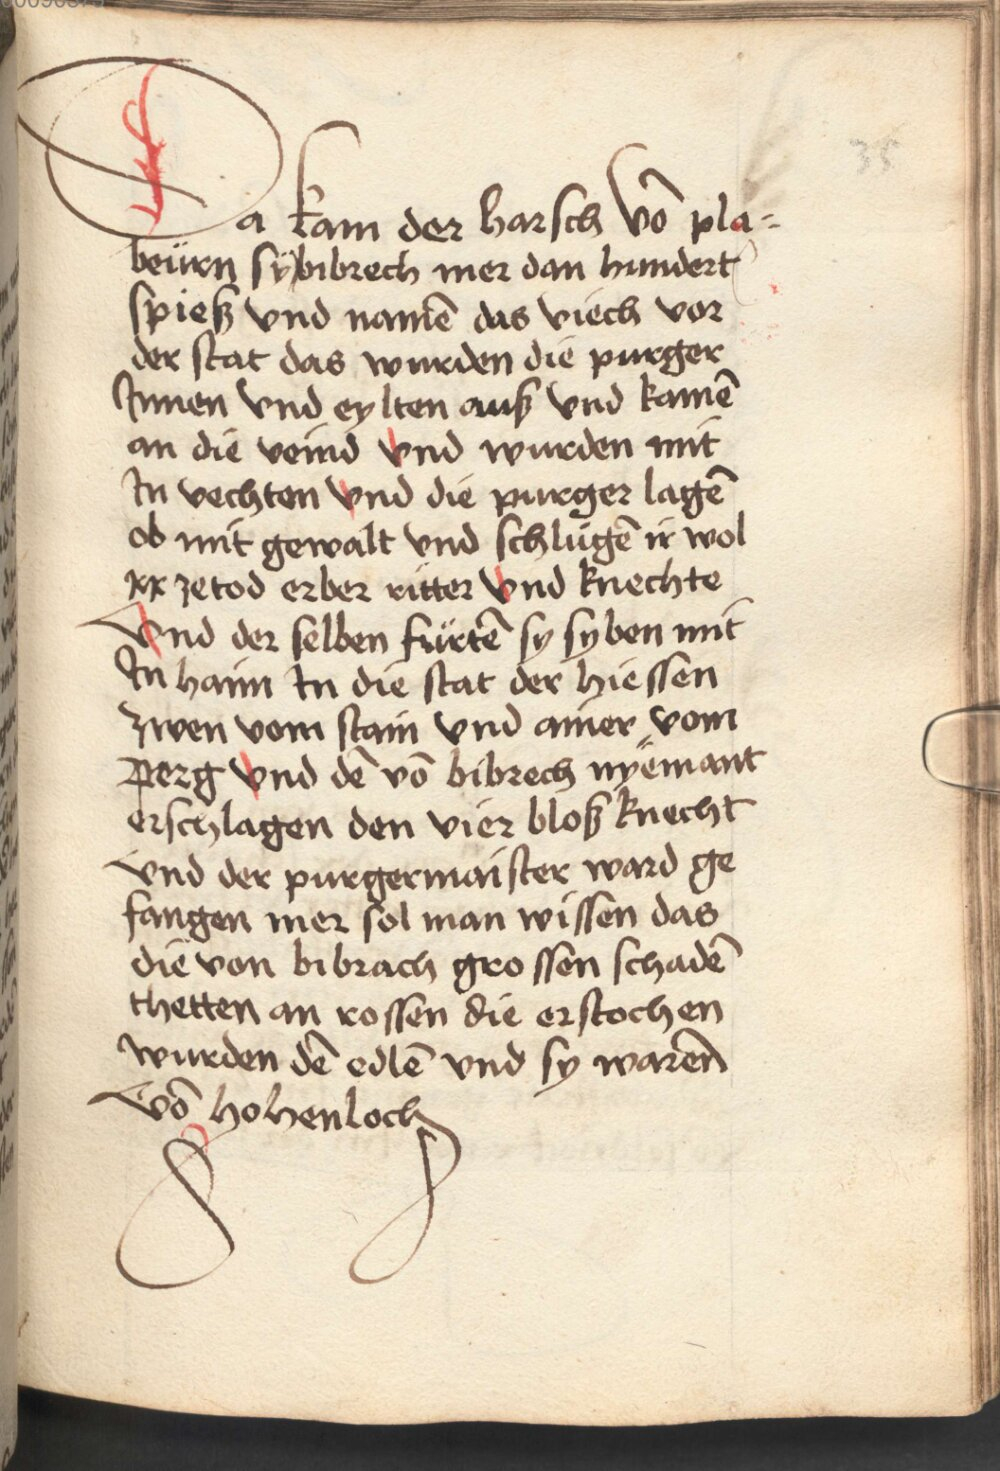 35
Da kam der harsch võ pla-
beürn sÿ bibrech mer dan hundert
spieß vnd namẽ das viech vor
der stat das wurden die purger
Innen vnd eylten auß vnd kamẽ
an die veind vnd wurden mit
In vechten vnd die purger lagẽ
ob mit gewalt vnd schlügẽ ir wol
xx zetod erber ritter vnd knechte
Vnd der selben fürtẽ sy syben mit
In haim In die stat der hiessen
zwen vom stain vnd ainer vom
Perg vnd dẽ võ bibrech nyemant
erschlagen den vier bloß knecht
vnd der purgermaister ward ge
fangen mer sol man wissen das
die von bibrach grossen schadẽ
thetten an rossen die erstochen
wurden dẽ edlẽ vnd sy waren
võ hohenloch